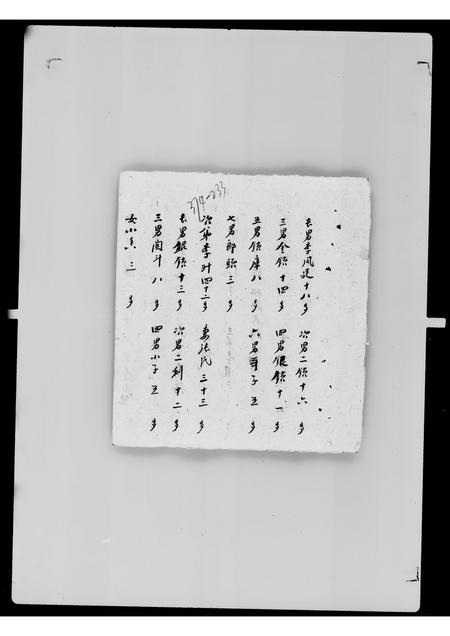 長男李鳳廷十八歲 次男二鎖十六歲
三男金鎖十四歲 四男銀鎖十一歲
五男鎖庫八歲 六男 子五歲
七男郎頭三歲
次弟李升四十二歲 妻張氏三十三歲
長男銀鎖十三歲 次男二利十二歲
三男 斗八歲 四男小子五歲
女小 三歲
374-233